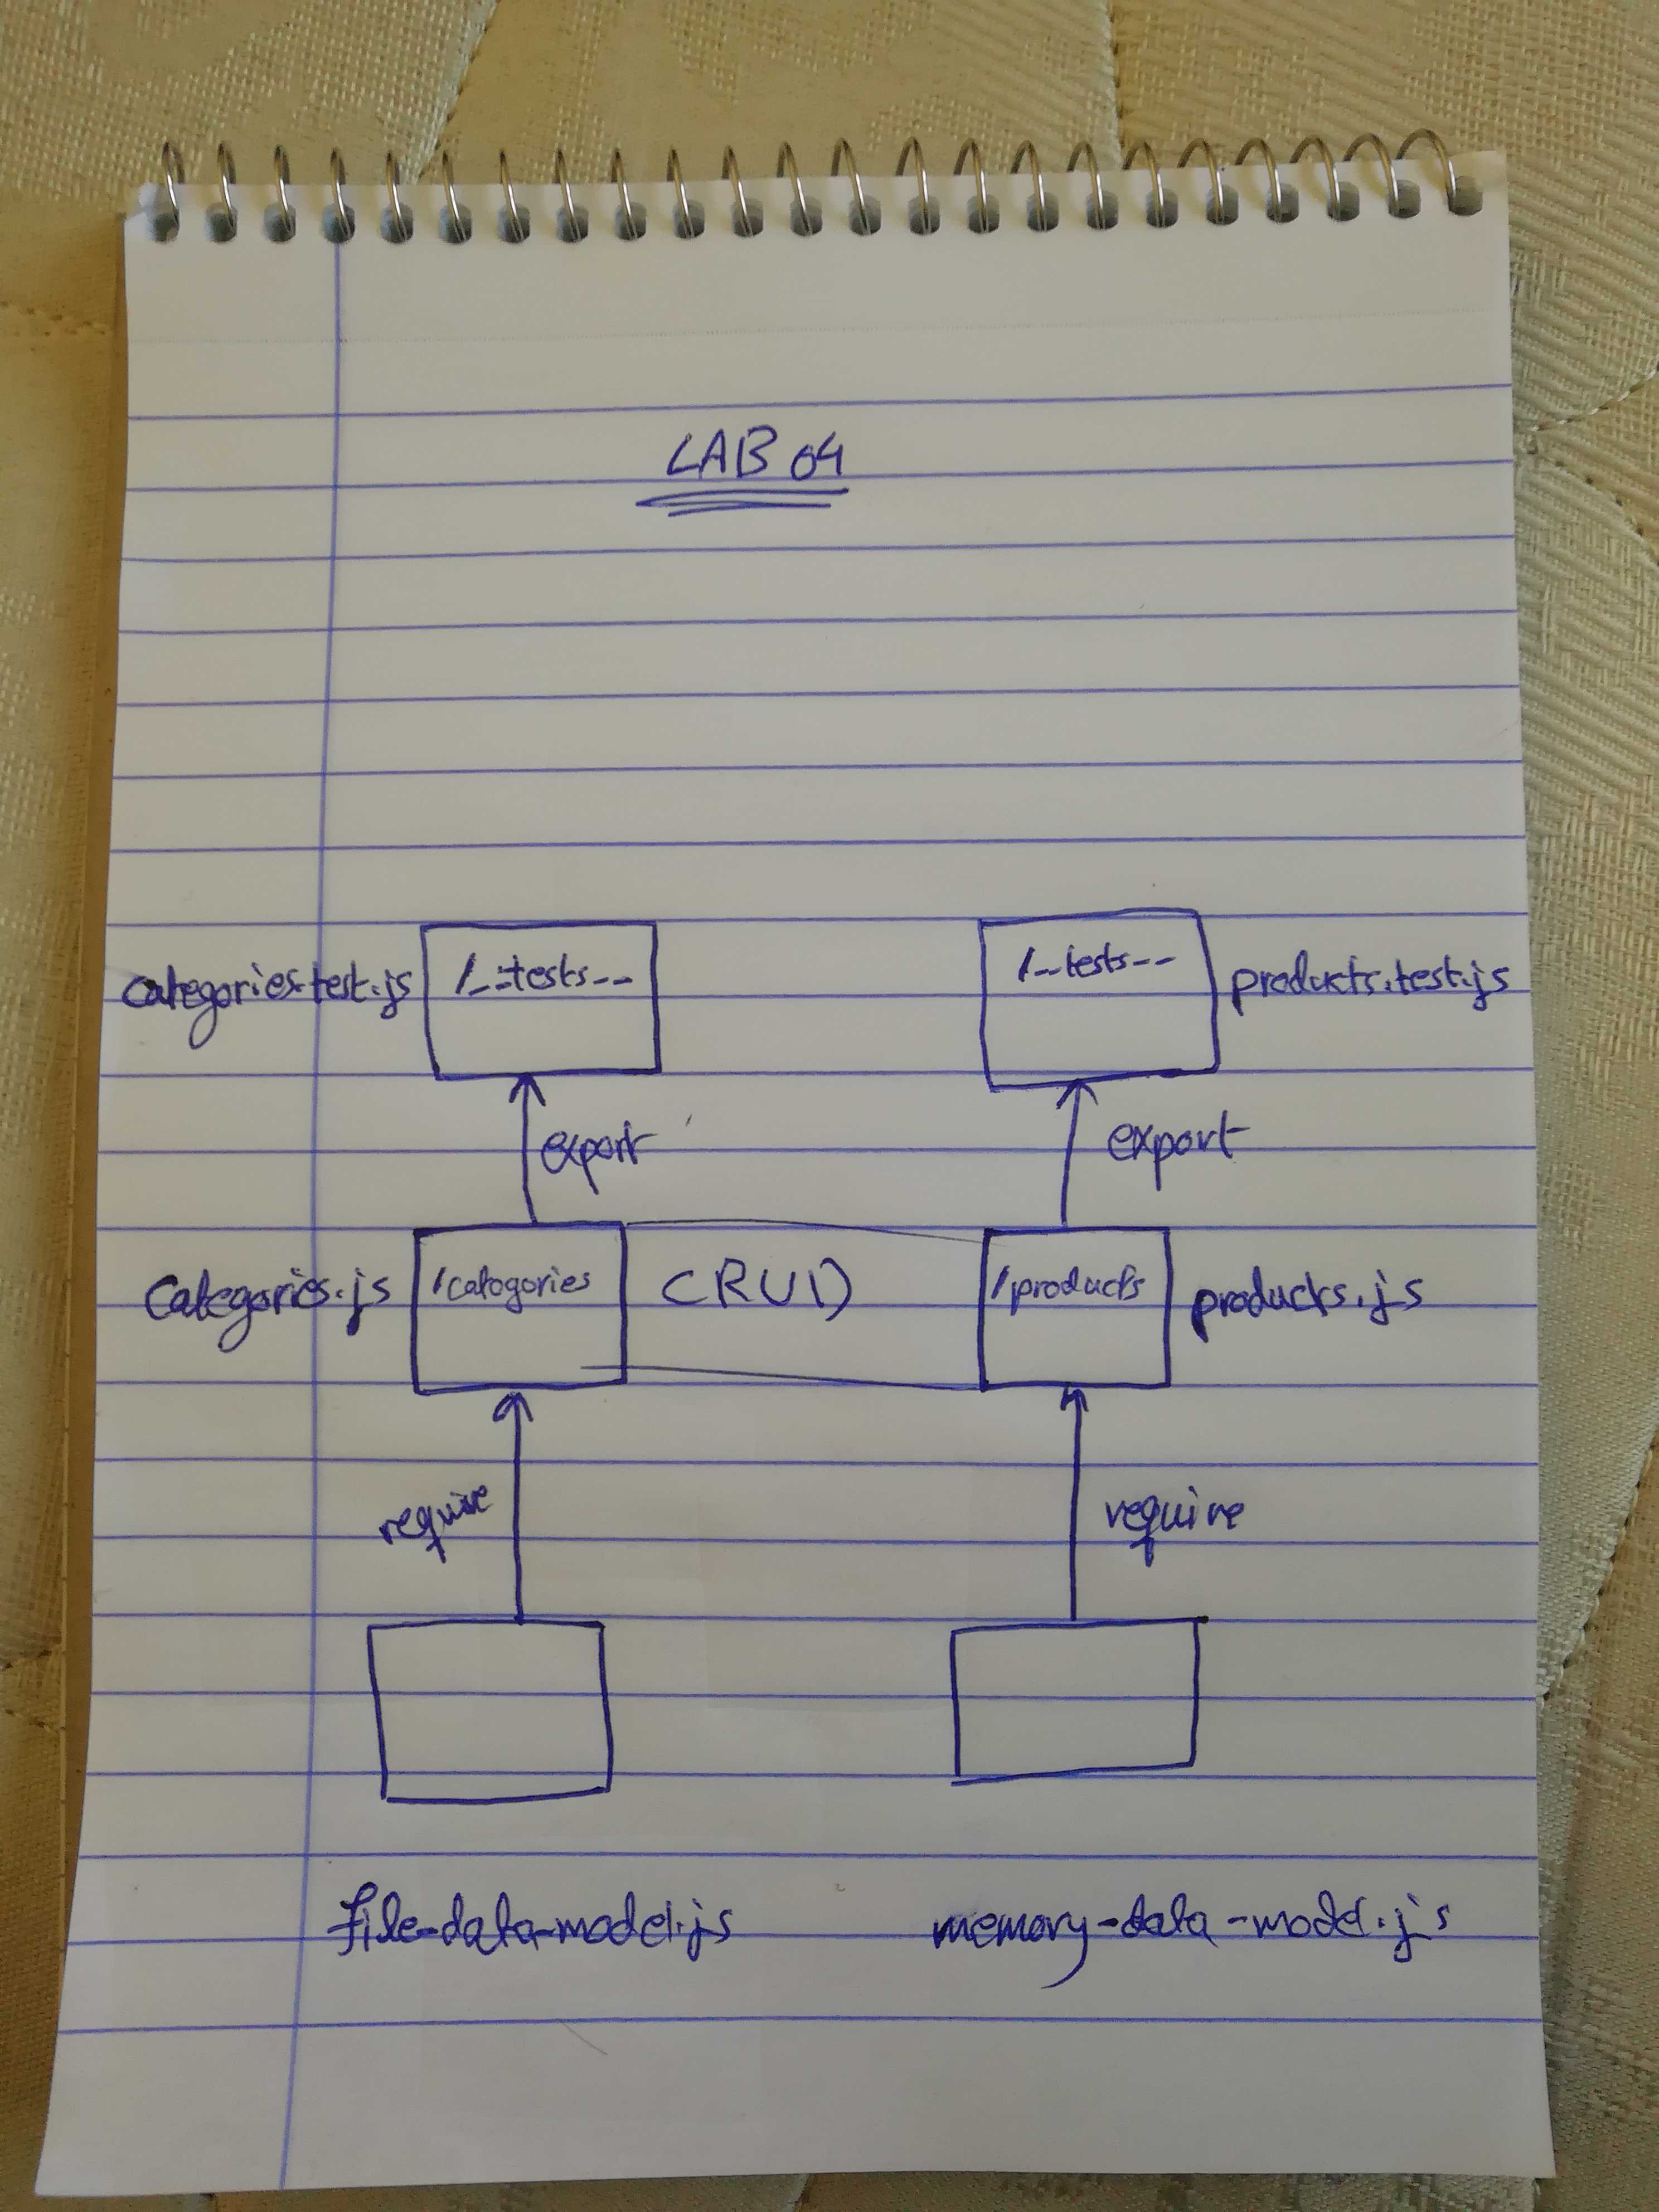 LAB 04
categories.test.js /__tests__ /__tests__ products.test.js
export export
categories.js /catogories CRUD /products products.js
require require
file-data-model.js memory-data-model.js